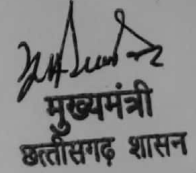 मुख्यमंत्री
छत्तीसगढ़ शासन